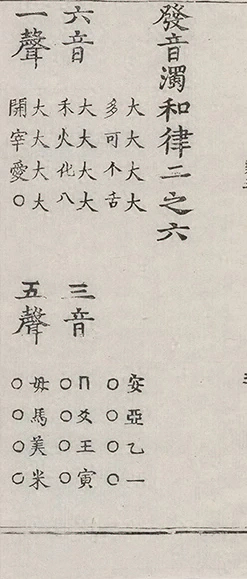 發音濁和律二之六
大大大大
多可个舌
六音
大大大大
禾火化八
一聲
大大大大
開宰愛○
安亞乙一
○○○○
三音
冂爻王寅
○○○○
五聲
母馬美米
○○○○